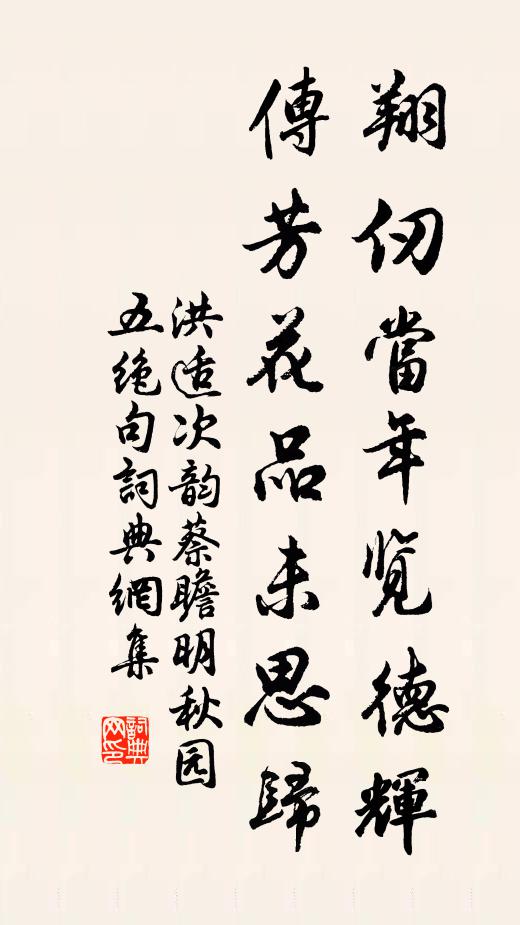 翔仞當年览德輝
傳芳花品未思歸
洪适次韵蔡瞻明秋园
五绝句詞典網集
詞典
网印